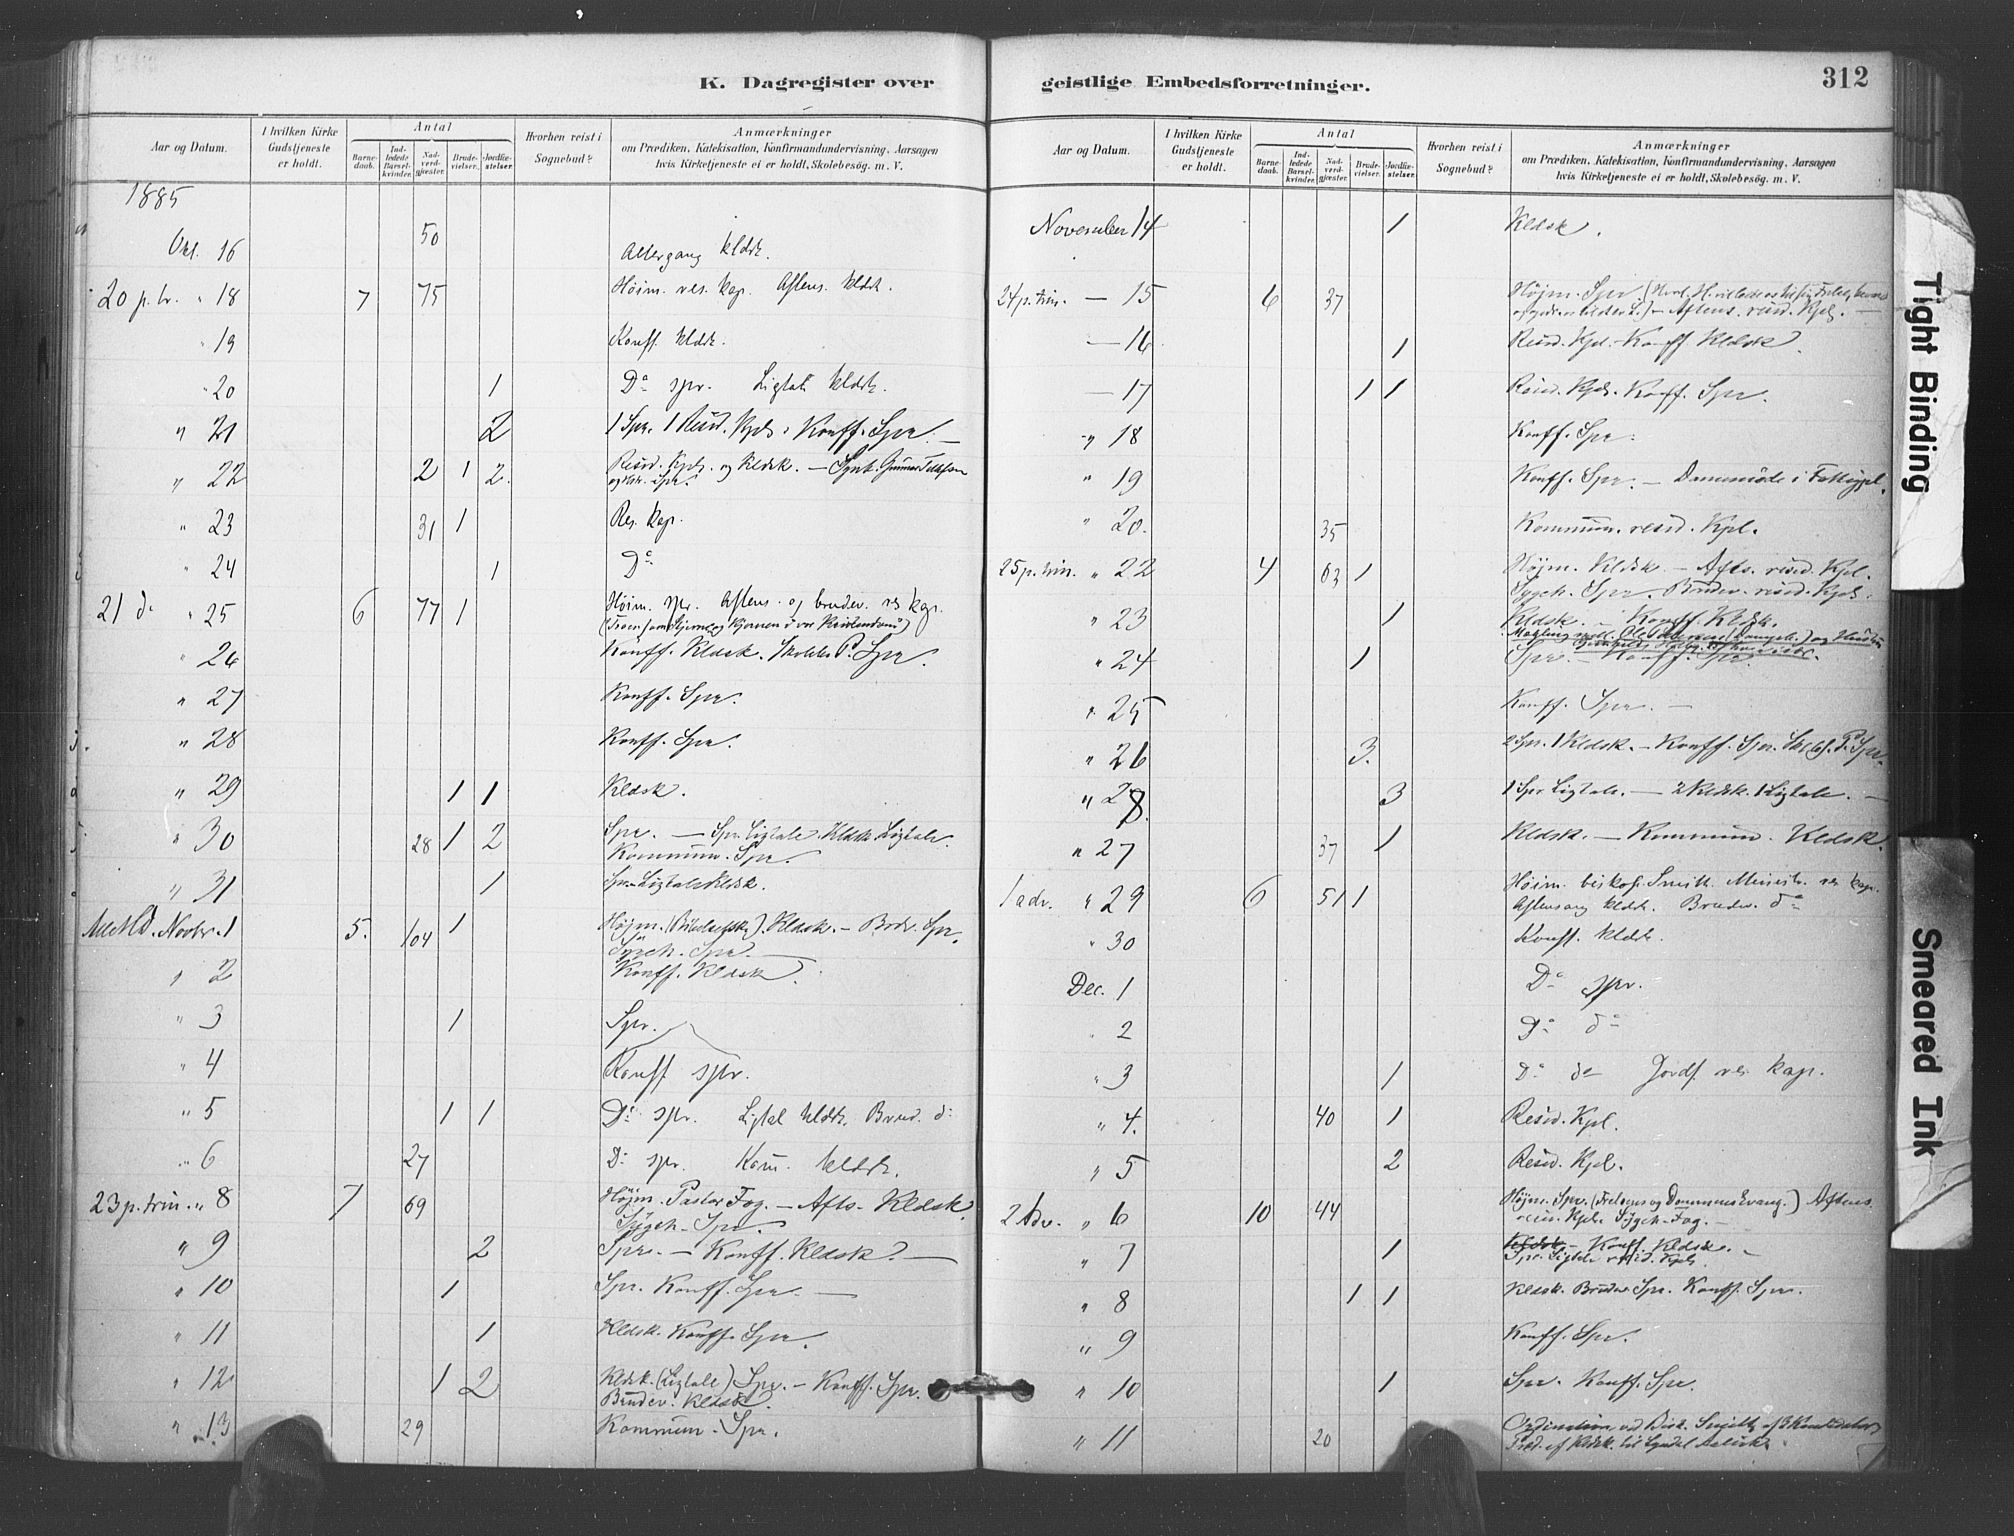 K. Dagregister over
Aar og Datum.
I hvilken Kirke Gudstjeneste er holdt.
Antal
Barnedaab.
Indledede Barselkvinder.
Nadverdgjæster.
Brudevielser.
Jordfæstelser.
Hvorhen reist i Sognebud?
Anmærkninger
om Prædiken, Katekisation, Konfirmandundervisning, Aarsagen
hvis Kirketjeneste ei er holdt, Skolebesøg. m. V.
1885
Okt. 16 50 Altergang kldsk.
20 p. tr. " 18 7 75 Høim. res. kap. Aftens. kldsk.
" 19 Konff. kldsk.
" 20 1 Do spr. Ligtale kldsk.
" 21 2 1 Spr. 1 Resid. Kpl. Konff. Spr. —
" 22 2 1 2. Resid. Kpl. og Kldsk. —
" 23 31 1 Res. kap.
" 24 1 Do
21 do " 25 6 77 1 Høim. spr. Aftens. og brudev. res kap.
" 26 Konff. Kldsk. Spr.
" 27 Konff. Spr.
" 28 Konff. Spr.
" 29 1 1 Kldsk.
" 30 28 1 2 Spr. — Spr. Ligtale. Kldsk Ligtale.
Kommun. Spr.
" 31 1 Spr. Ligtale Kldsk.
Novbr. 1 5. 104 1 Højm. Kldsk. — Brdv. Spr.
Sygeh. Spr. —
" 2 Konff. Kldsk.
" 3 1 Spr.
" 4 Konff spr.
" 5 1 1 Do spr. Ligtal kldsk. Brud. do
" 6 27 Do spr. Kom. kldsk.
23 p. trin. " 8 7 69 Højm. Pastor Fog. — Afts. Kldsk.
Sygeh. Spr.
" 9 2 Spr. — Konff. Kldsk. —
" 10 1 Spr. Konff. Spr. —
" 11 1 Kldsk. Konff. Spr.
" 12 1 2 Kldsk. (Ligtale) Spr. — Konff. Spr.
Brudev. Kldsk.
" 13 29 Kommun. Spr.
geistlige Embedsforretninger.
312
Aar og Datum.
I hvilken Kirke Gudstjeneste er holdt.
Antal
Barnedaab.
Indledede Barselkvinder.
Nadverdgjæster.
Brudevielser.
Jordfæstelser.
Hvorhen reist i Sognebud?
Anmærkninger
om Prædiken, Katekisation, Konfirmandundervisning, Aarsagen
hvis Kirketjeneste ei er holdt, Skolebesøg. m. V.
November 14 1 Kldsk.
24 p. trin. — 15 6 37 Højm. Spr.
Aftens. resid. Kpl. —
— 16 1 Resid. Kpl. Konff Kldsk.
— 17 1 1 Resid. Kpl. Konff. Spr.
" 18 Konff. Spr.
" 19 Konff. Spr. —
" 20. 35 Kommun. resid. Kpl.
25 p. trin. " 22 4 63 1 Højm. Kldsk — Afts. resid. Kpl.
Sygeh. Spr. Brudev. resid. Kpl.
" 23 1 Kldsk. — Konff. Kldsk.
" 24 1 Spr. — Konff. Spr.
" 25 Konff. Spr. —
" 26 3. 2 Spr. 1 Kldsk. — Konff. Spr.
" 28. 3 1 Spr Ligtale. — 2 Kldsk. 1 Ligtale. —
" 27 37 1 Kldsk. — Kommun. Kldsk.
1 adv. " 29 6 51 1 Høim. biskop Smitt. res kap.
Aftensang kldsk. Brudev. do
" 30 Konff. kldsk.
Dec. 1 Do spr.
" 2 Do do
" 3 1 Do do Jordf. res kap.
" 4. 40 1 Resid. Kpl.
" 5 2 Resid. Kpl.
2 Adv. " 6 10 44 Højm. Spr. Aftens.
resid. Kpl. Sygeh. Fog. —
" 7 1 Konff. Kldsk. —
Spr. Ligtale resid. Kpl.
" 8 1 1 Kldsk. Brudev. Spr. Konff. Spr.
" 9 Konff. Spr.
" 10 1 Spr. Konff. Spr.
" 11 20
Tight Binding
Smeared Ink